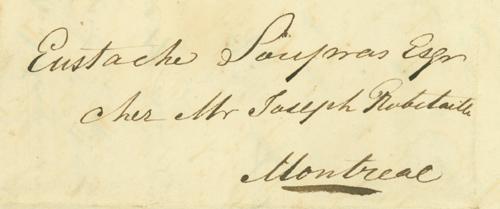 Eustache Soupras Esqr
chez Mr Joseph Robitaille
Montreal